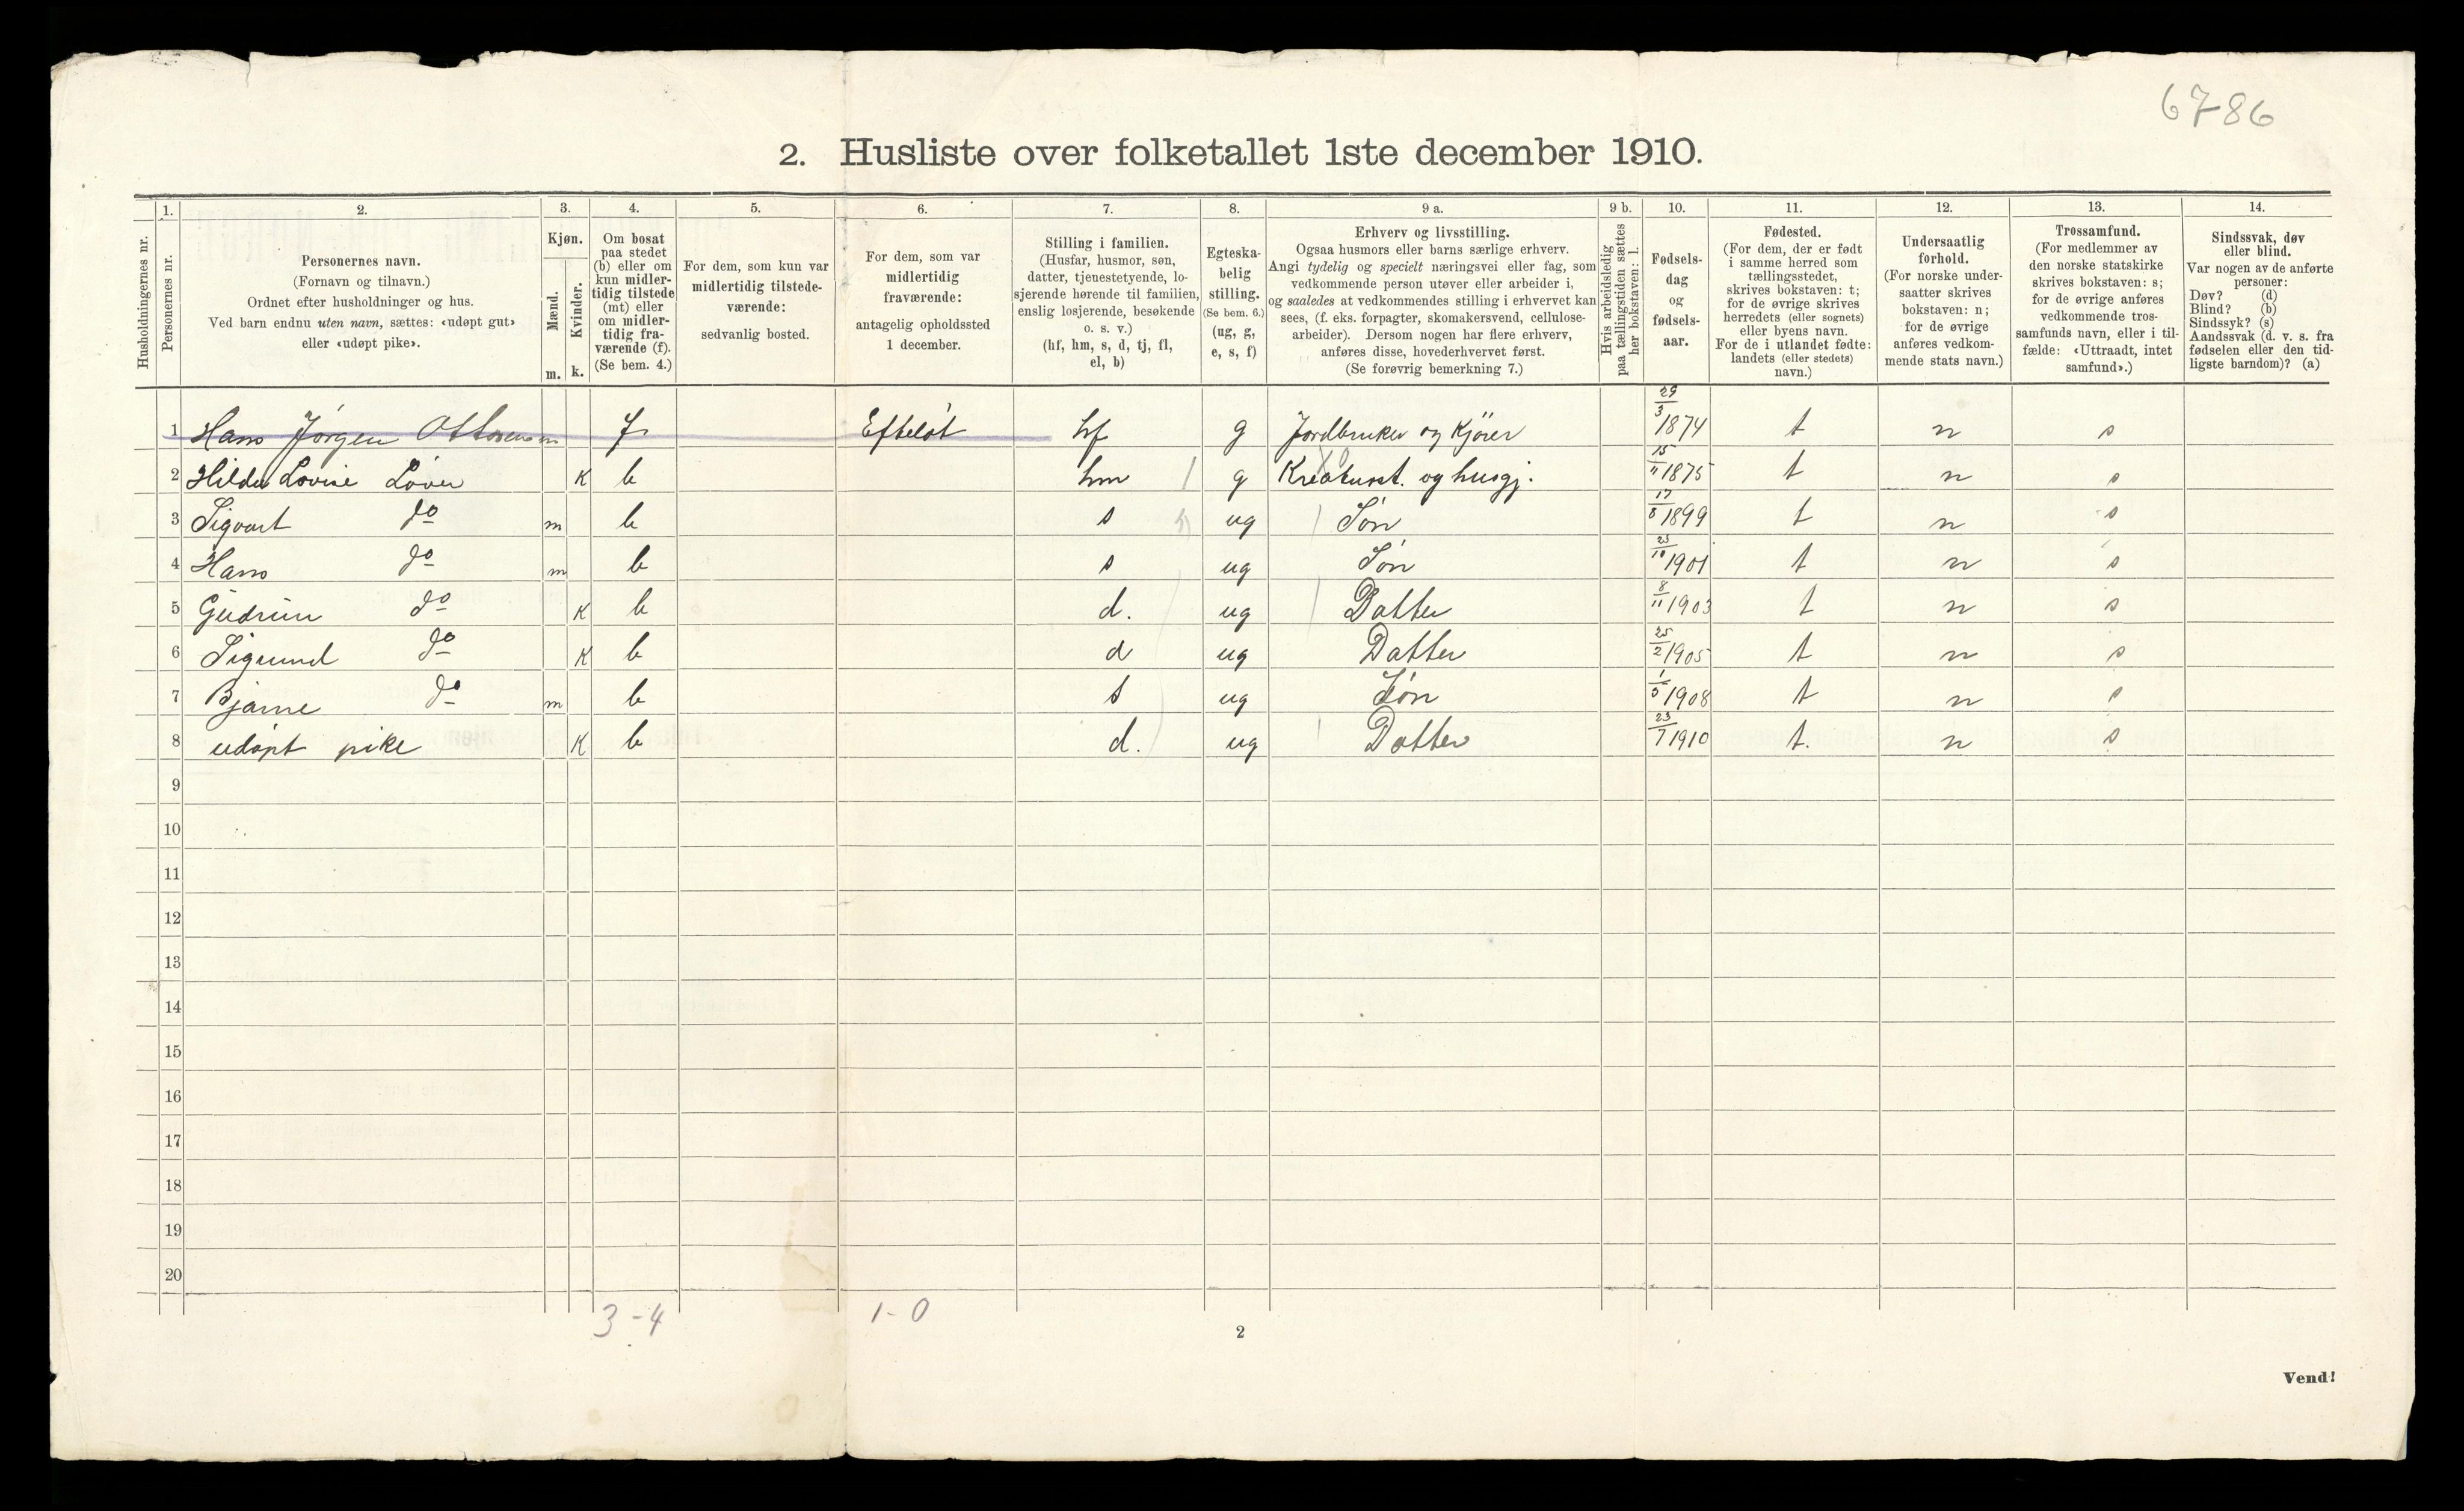 6786
2. Husliste over folketallet 1ste december 1910.
Husholdningernes nr.
1.
Personernes nr.
2.
Personernes navn.
(Fornavn og tilnavn.)
Ordnet efter husholdninger og hus.
Ved barn endnu uten navn, sættes: «udøpt gut»
eller «udøpt pike».
3.
Kjøn.
Mænd.
Kvinder.
m. k.
4.
Om bosat
paa stedet
(b) eller om
kun midler-
tidig tilstede
(mt) eller
om midler-
tidig fra-
værende (f).
(Se bem. 4.)
5.
For dem, som kun var
midlertidig tilstede-
værende:
sedvanlig bosted.
6.
For dem, som var
midlertidig
fraværende:
antagelig opholdssted
1 december.
7.
Stilling i familien.
(Husfar, husmor, søn,
datter, tjenestetyende, lo-
sjerende hørende til familien,
enslig losjerende, besøkende
o. s. v.)
(hf, hm, s, d, tj, fl,
el, b)
8.
Egteska-
belig
stilling.
(Se bem. 6.)
(ug, g,
e, s, f)
9 a.
Erhverv og livsstilling.
Ogsaa husmors eller barns særlige erhverv.
Angi tydelig og specielt næringsvei eller fag, som
vedkommende person utøver eller arbeider i,
og saaledes at vedkommendes stilling i erhvervet kan
sees, (f. eks. forpagter, skomakersvend, cellulose-
arbeider). Dersom nogen har flere erhverv,
anføres disse, hovederhvervet først.
(Se forøvrig bemerkning 7.)
9 b.
Hvis arbeidsledig
paa tællingstiden sættes
her bokstaven: l.
10.
Fødsels-
dag
og
fødsels-
aar.
11.
Fødested.
(For dem, der er født
i samme herred som
tællingsstedet,
skrives bokstaven: t;
for de øvrige skrives
herredets (eller sognets)
eller byens navn.
For de i utlandet fødte:
landets (eller stedets)
navn.)
12.
Undersaatlig
forhold.
(For norske under-
saatter skrives
bokstaven: n;
for de øvrige
anføres vedkom-
mende stats navn.)
13.
Trossamfund.
(For medlemmer av
den norske statskirke
skrives bokstaven: s;
for de øvrige anføres
vedkommende tros-
samfunds navn, eller i til-
fælde: «Uttraadt, intet
samfund».)
14.
Sindssvak, døv
eller blind.
Var nogen av de anførte
personer:
Døv? (d)
Blind? (b)
Sindssyk? (s)
Aandssvak (d. v. s. fra
fødselen eller den tid-
ligste barndom)? (a)
1 Hans Jørgen Ottosen m f Efteløt hf g Jordbruker og Kjører 29/3 1874 t n s
2 Hilda Lovise Løver K b hm g Kreaturst. og husgj. 15/11 1875 t n s
3 Sigvart do m b s ug Søn 17/8 1899 t n s
4 Hans do m b s ug Søn 23/10 1901 t n s
5 Gudrun do K b d. ug Datter 8/11 1903 t n s
6 Sigrund do K b d ug Datter 25/2 1905 t n s
7 Bjarne do m b s ug Søn 1/5 1908 t n s
8 udøpt pike K b d. ug Datter 23/7 1910 t. n s
9
10
11
12
13
14
15
16
17
18
19
20
3 - 4 1 - 0
2
Vend!